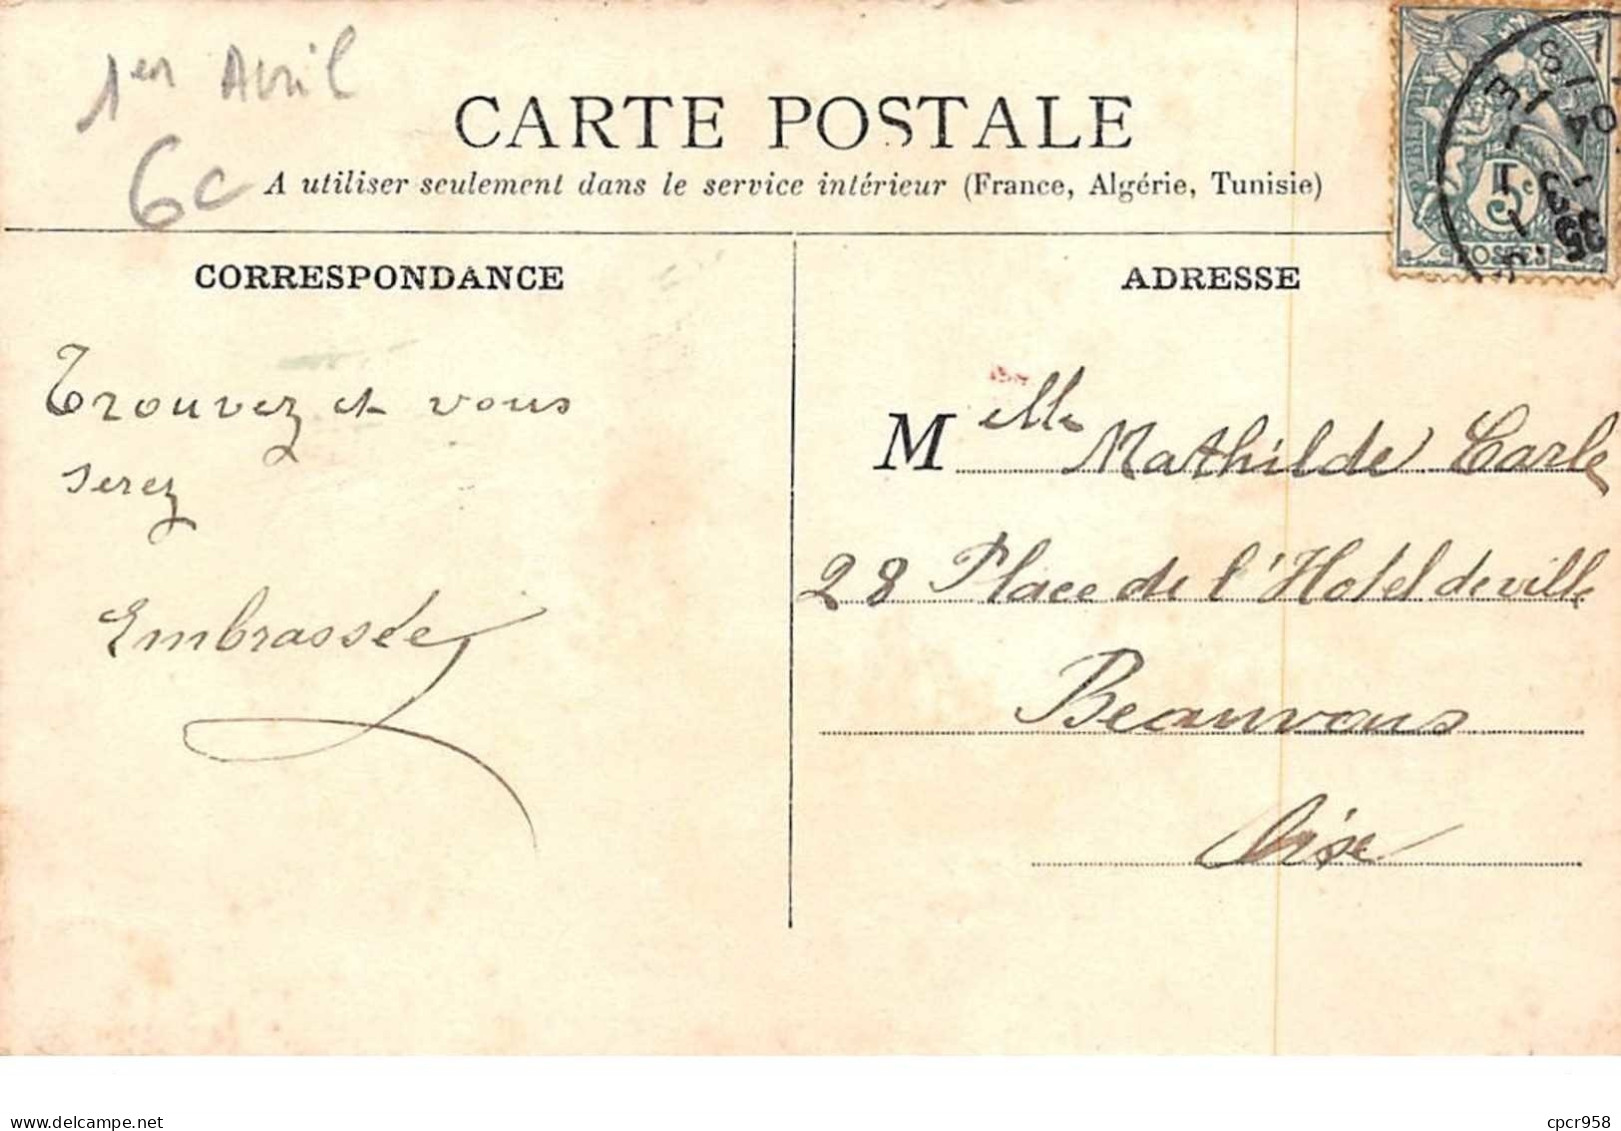 1er Avril
6c
CARTE POSTALE
A utiliser seulement dans le service intérieur (France, Algérie, Tunisie)
5c
POSTES
CORRESPONDANCE
ADRESSE
Trouvez et vous
serez
Embrassée
Melle Mathilde Carle
28 Place de l'Hotel de ville
Beauvais
Oise
www.delcampe.net
cpcr958